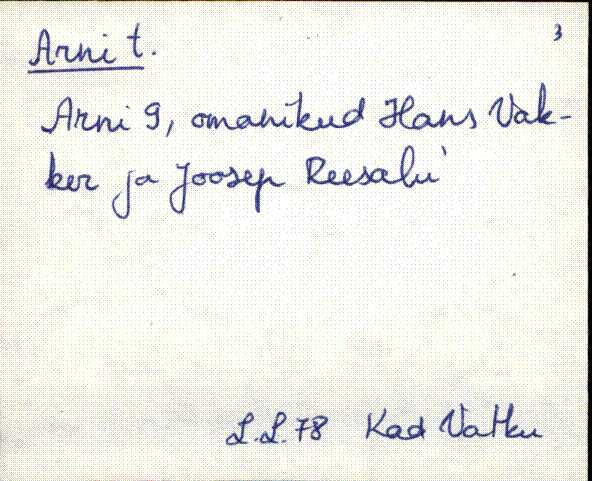 3
Arni t.
Arni 9, omanikud Hans Vak-
ker ja Joosep Reesalu
L.L. 78 Kad Vatku